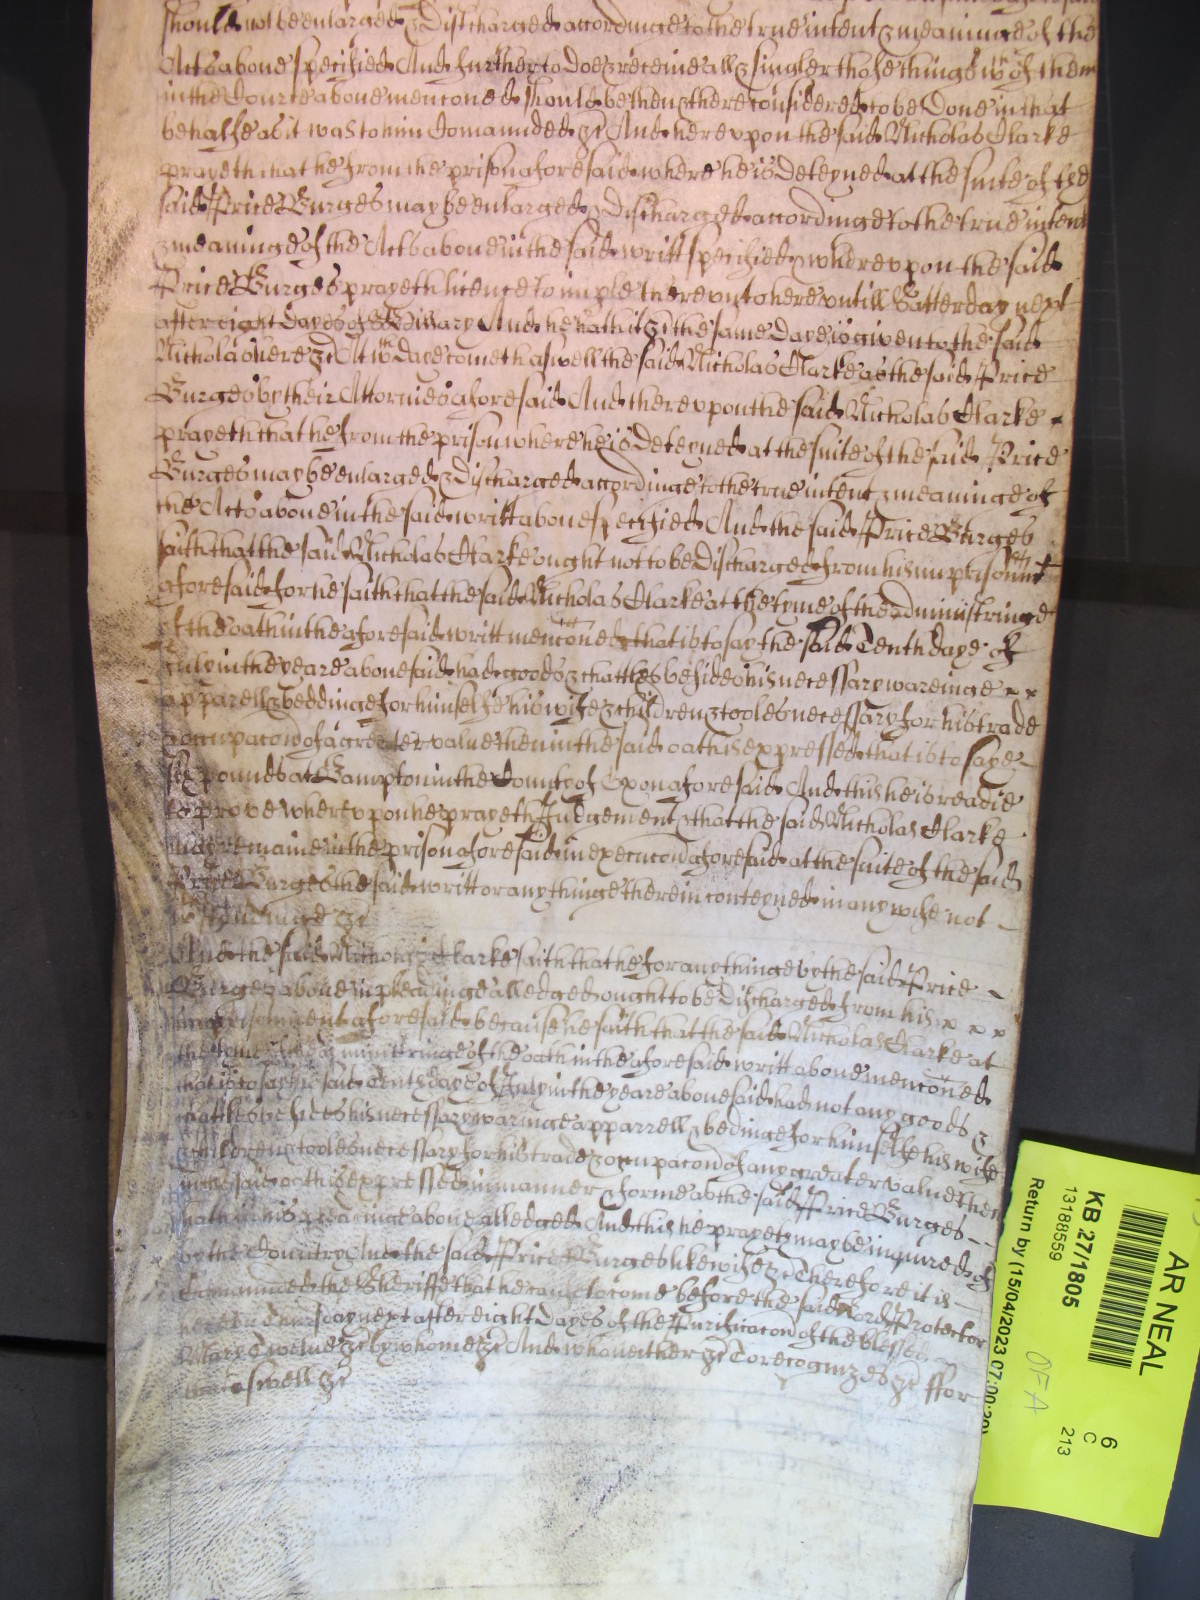 should not be enlarged & discharged accordinge to the true intent & meaninge of the
Acts above specified And further to doe & receive all & singler those things wch of them
in the Courte above menconed should be then & there considered to be done in that
behalfe as it was to him Comaunded &c And hereupon the said Nicholas Clarke
prayeth that he from the prison aforesaid where he is deteyned at the suite of the
said Price Burges may be enlarged & discharged accordinge to the true intent
& meaninge of the Acts above in the said writt specified whereupon the said
Price Burges prayeth licence to imple thereunto here untill Satterday next
after eight dayes of St Hillary And he hath it &c the same day is given to the said
Nicholas here &c At wch day cometh aswell the said Nicholas Clarke as the said Price
Burges by their Attornies aforesaid And thereupon the said Nicholas Clarke
prayeth that he from the prison where he is deteyned at the suite of the said Price
Burges may be enlarged & discharged accordinge to the true intent & meaninge of
the Acts above in the said writt above specified And the said Price Burges
saith that the said Nicholas Clarke ought not to be discharged from his imprisonmt
aforesaid for he saith that the said Nicholas Clarke at the tyme of the administringe
of the oath in the aforesaid writt menconed that is to say the said Tenth daye of
July in the yeare abovesaid had goods & chattles besides his necessary wareinge
apparell & beddinge for himselfe his wife & children & tooles necessary for his trade
& occupacon of a greater value then in the said oath is expressed that is to saye
six pounds at Bampton in the County of Oxon aforesaid And this he is readie
to prove whereupon he prayeth Judgement & that the said Nicholas Clarke
may remaine in the prison aforesaid in execucon aforesaid at the suite of the said
Price Burges the said writt or anythinge therein conteyned in any wise not
wthstandinge &c
And the said Nicholas Clarke saith that he for anythinge by the said Price
Burges above in pleadinge alledged ought to be discharged from his
imprisonment aforesaid because he saith that the said Nicholas Clarke at
the tyme of the administringe of the oath in the aforesaid writt above menconed
that is to say the said tenth daye of July in the yeare abovesaid had not any goods &
chattles besides his necessary waringe apparrell & bedinge for himselfe his wife
& children & tooles necessary for his trade & occupacon of any greater value then
in the said oath is expressed in manner & forme as the said Price Burges
hath in his pleadinge above alledged And this he prayeth may be inquired of
by the Country And the said Price Burges likewise &c Therefore it is
Comaunded the Sheriffe that he cause to come before the said Lord Protector
here on Thursday next after eight dayes of the Purificacon of the blessed
Mary Twelve &c by whome &c And who neither &c To recognize &c ffor
that aswell &c
AR NEAL
6
C
213
KB 27/1805
13188559
Return by (15/04/2023 07:00:20)
OFA